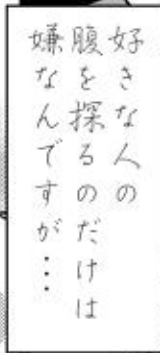 好きな人の
腹を探るのだけは
嫌なんですが・・・